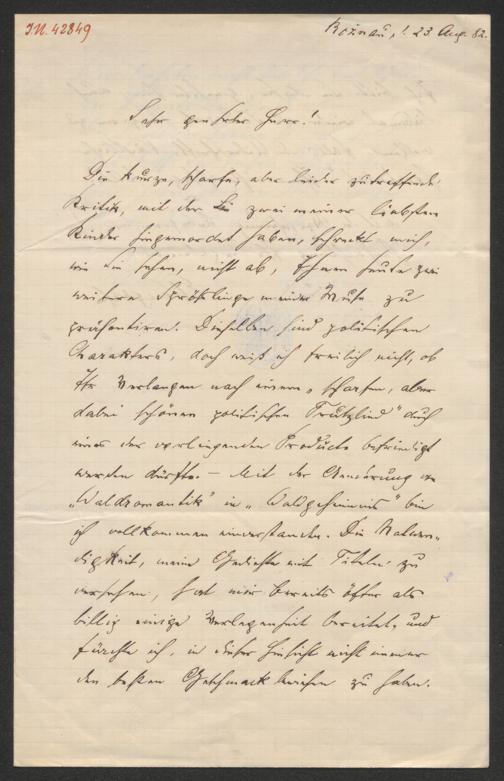 J.N. 42849
Rožnau, 23 Aug. 82.
Sehr geehrter Herr!
Die kurze, scharfe, aber leider zutreffende
Kritik, mit der Sie zwei meiner liebsten
Kinder hingemordet haben, schreckt mich,
wie Sie sehen, nicht ab, Ihnen heute zwei
weitere Sprößlinge meiner Muse zu
präsentiren. Dieselben sind politischen
Charakters, doch weiß ich freilich nicht, ob
Ihr Verlangen nach einem „scharfen, aber
dabei schönen politischen Trutzlied" durch
eines der vorliegenden Producte befriedigt
werden dürfte. – Mit der Aenderung von
„Waldromantik" in „Waldgeheimnis" bin
ich vollkommen einverstanden. Die Nothwen-
digkeit, meine Gedichte mit Titeln zu
versehen, hat mir bereits öfter als
billig einige Verlegenheit bereitet, und
fürchte ich, in dieser Hinsicht nicht immer
den besten Geschmack bewiesen zu haben.